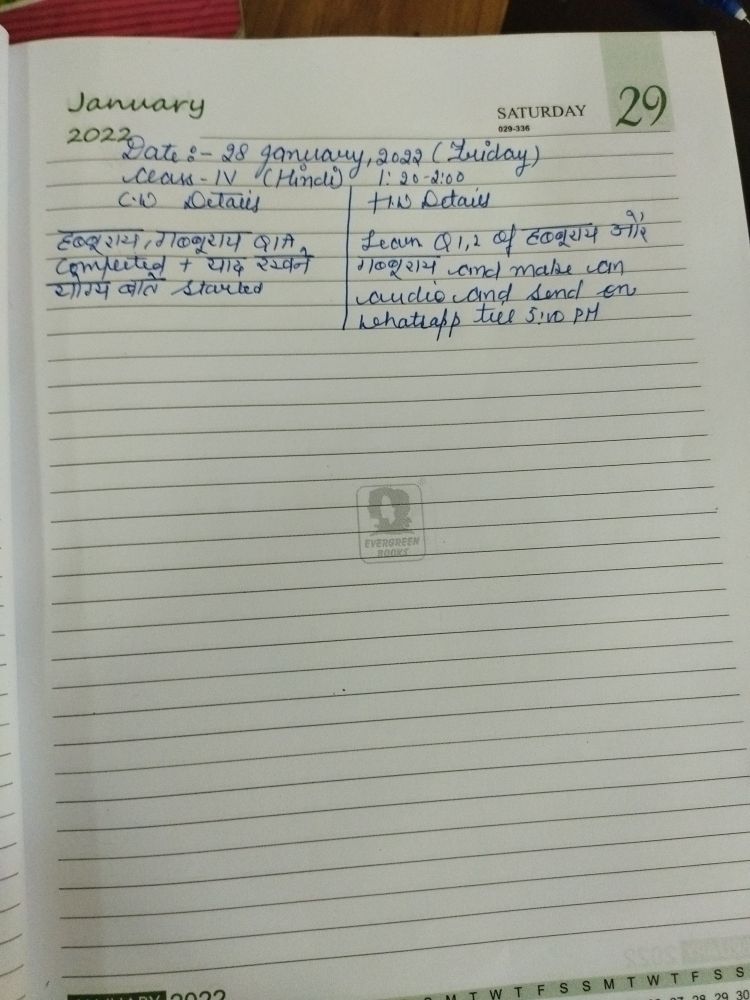 January
2022
SATURDAY
029-336
29
Date :- 28 January, 2022 (Friday)
Class - IV (Hindi) 1:20-2:00
C.W Details
हब्बूराय, गब्बूराय Q1A
Completed + याद रखने
योग्य बातें started
H.W Details
Learn Q1,2 of हब्बूराय और
गब्बूराय and make an
audio and send on
whatsapp till 5:10 PM
EVERGREEN
BOOKS
JANUARY 2022
S M T W T F S S M T W T F S S
28 29 30